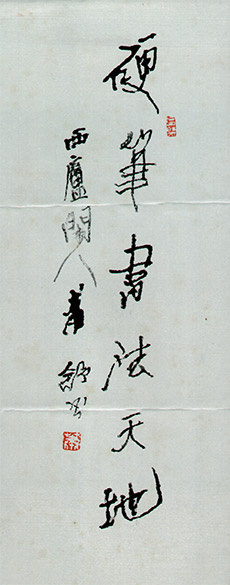 硬筆書法天地
西廬閒人書